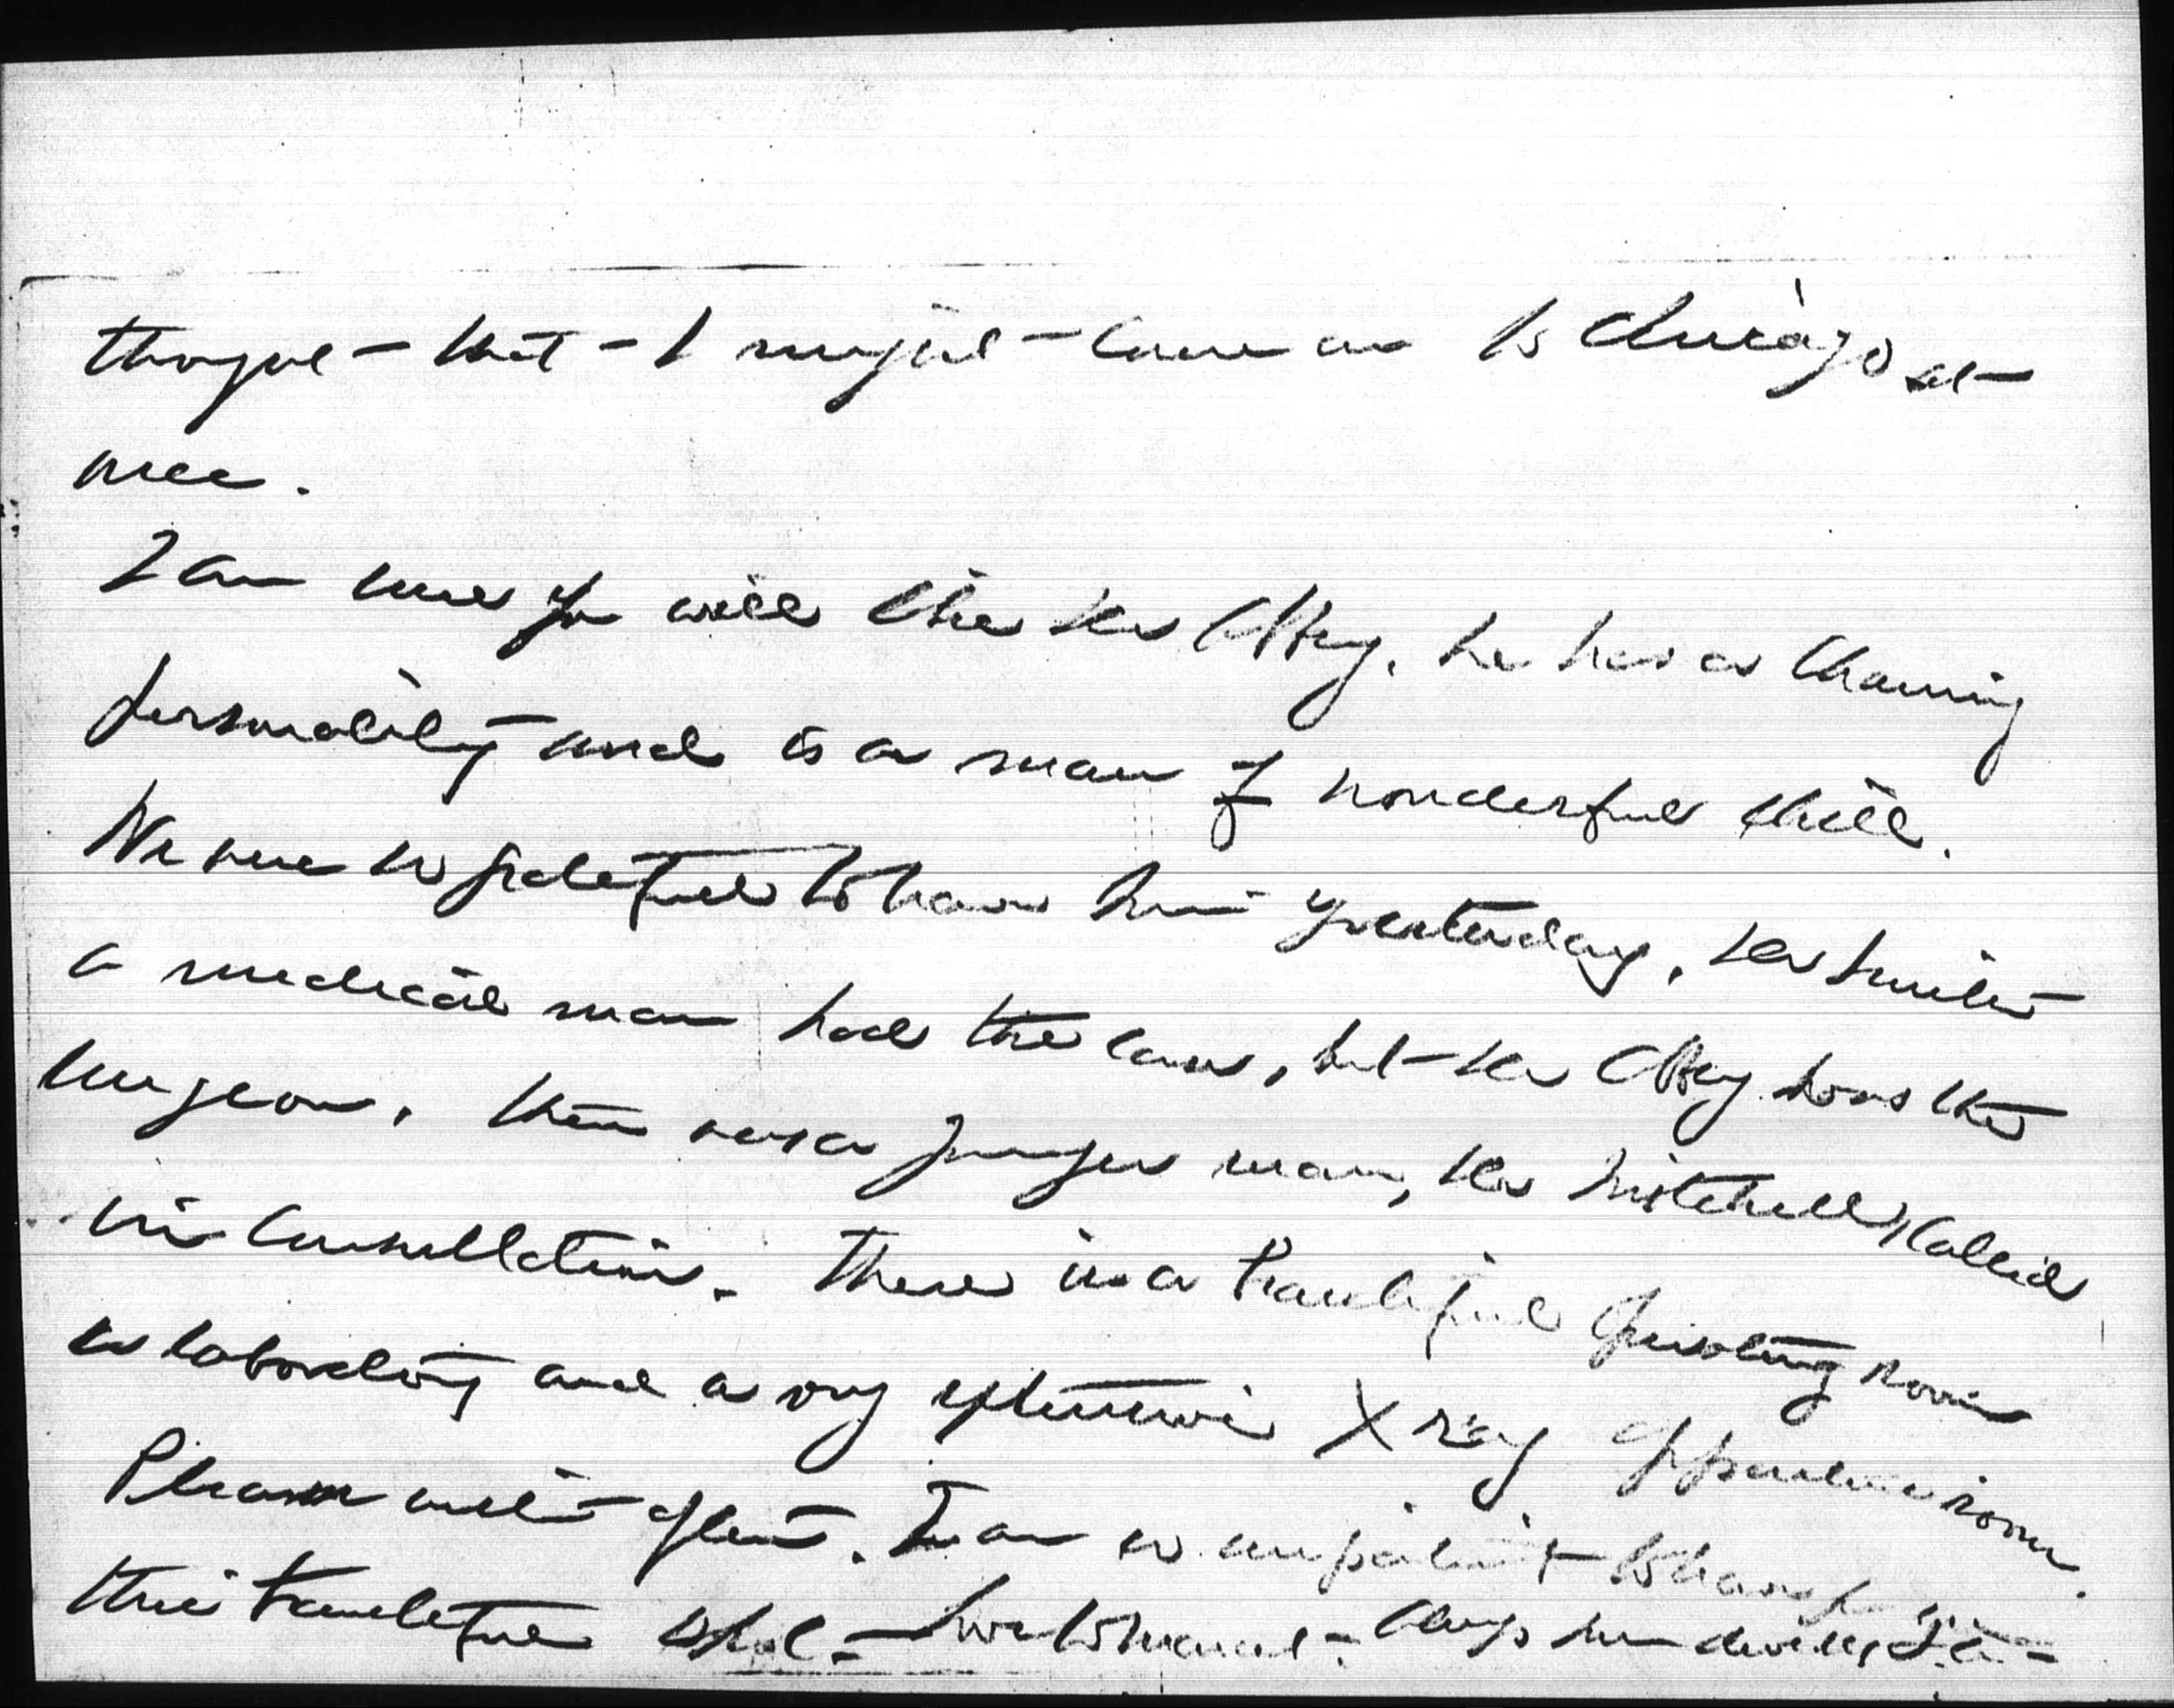 thought that I might come on to Chicago at
once.
I am sure you will like Dr Abbey. he has a charming
personality and is a man of wonderful skill.
We were so grateful to have him yesterday, Dr
a medical man had the case, but Dr Abbey was the
surgeon. there was a younger man, Dr Mitchell, called
in consultation. There is a beautiful operating room
a laboratory and a very extensive X ray apparatus room.
Please write often. I am so impatient to have you
this beautiful spot